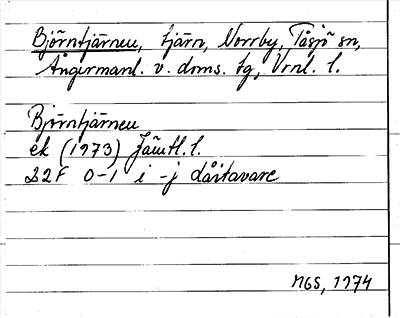 Björntjärnen, tjärn, Norrby, Tåsjö sn,
Ångermanl. v. doms. tg, Vrnl. l.
Björntjärnen
ek (1973) Jämtl. l.
22F 0-1 i-j
MGS, 1974